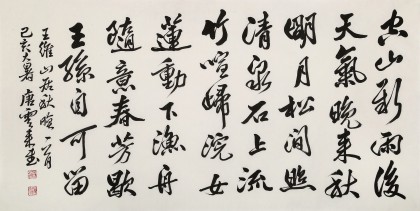 空山新雨後
天氣晚來秋
明月松間照
清泉石上流
竹喧歸浣女
蓮動下漁舟
隨意春芳歇
王孫自可留
王維山居秋暝一首
己亥大暑 唐雲來書